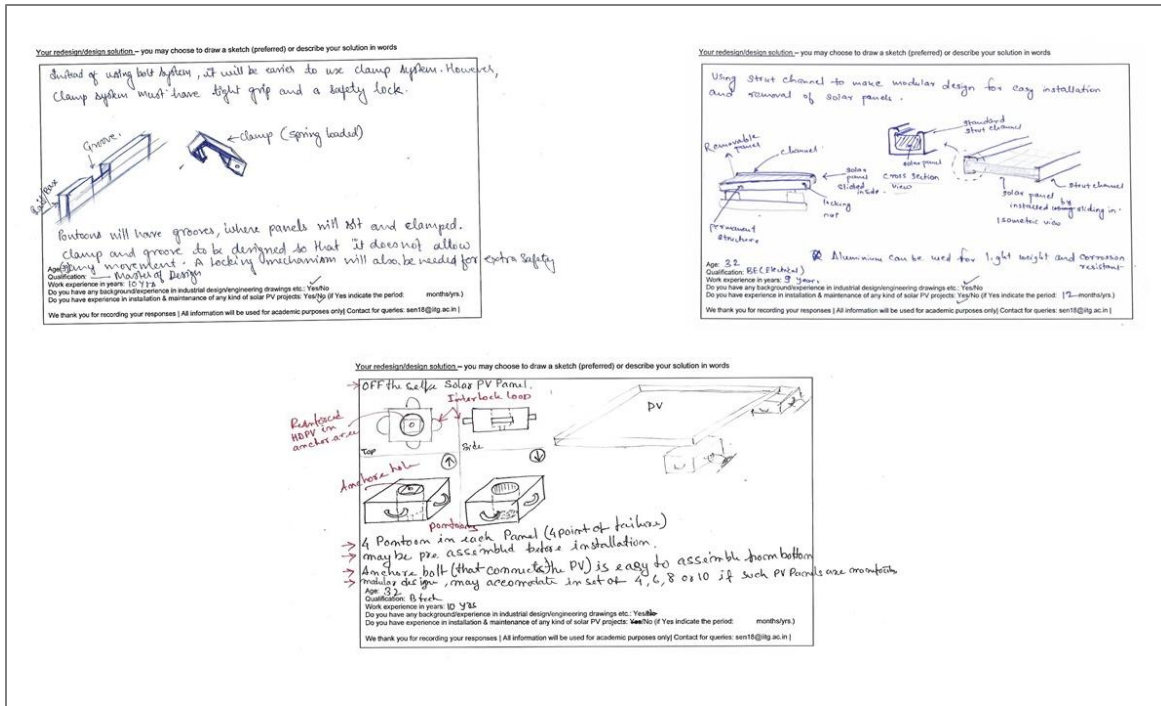 Your redesign/design solution – you may choose to draw a sketch (preferred) or describe your solution in words
Instead of using bolt system, it will be easier to use clamp system. However,
clamp system must have tight grip and a safety lock.
Groove.
clamp (spring loaded)
Rail/Bar
Pontoons will have grooves, where panels will sit and clamped.
clamp and groove to be designed so that it does not allow
any movement. A locking mechanism will also be needed for extra safety
Age:
Qualification: Master of Design
Work experience in years: 10 Yrs
Do you have any background/experience in industrial design/engineering drawings etc.: Yes/No
Do you have experience in installation & maintenance of any kind of solar PV projects: Yes/No (if Yes indicate the period: months/yrs.)
We thank you for recording your responses | All information will be used for academic purposes only| Contact for queries: sen18@iitg.ac.in |
Your redesign/design solution – you may choose to draw a sketch (preferred) or describe your solution in words
Using strut channel to make modular design for easy installation
and removal of solar panels.
Removable
panel
channel
solar
panel
slided
inside
locking
nut
permanent
structure
standard
strut channel
solar panel
cross section
view
strut channel
solar panel
installed by sliding in
Isometric view
Aluminium can be used for light weight and corrosion
resistant
Age: 32
Qualification: BE(Electrical)
Work experience in years: 9 years
Do you have any background/experience in industrial design/engineering drawings etc.: Yes/No
Do you have experience in installation & maintenance of any kind of solar PV projects: Yes/No (if Yes indicate the period: 12 months/yrs.)
We thank you for recording your responses | All information will be used for academic purposes only| Contact for queries: sen18@iitg.ac.in |
Your redesign/design solution – you may choose to draw a sketch (preferred) or describe your solution in words
OFF the selfe Solar PV Panel.
Interlock loop
Reinforced
HDPV in
anchor area
Top
Side
PV
Anchore hole
pontoons
4 Pontoon in each Panel (4 point of failure)
may be pre assembled before installation.
Anchore bolt (that connects the PV) is easy to assemble from bottom
modular design, may accomodate in set of 4, 6, 8 or 10 if such PV Panels are
Age: 32
Qualification: B tech
Work experience in years: 10 yrs
Do you have any background/experience in industrial design/engineering drawings etc.: Yes/No
Do you have experience in installation & maintenance of any kind of solar PV projects: Yes/No (if Yes indicate the period: months/yrs.)
We thank you for recording your responses | All information will be used for academic purposes only| Contact for queries: sen18@iitg.ac.in |